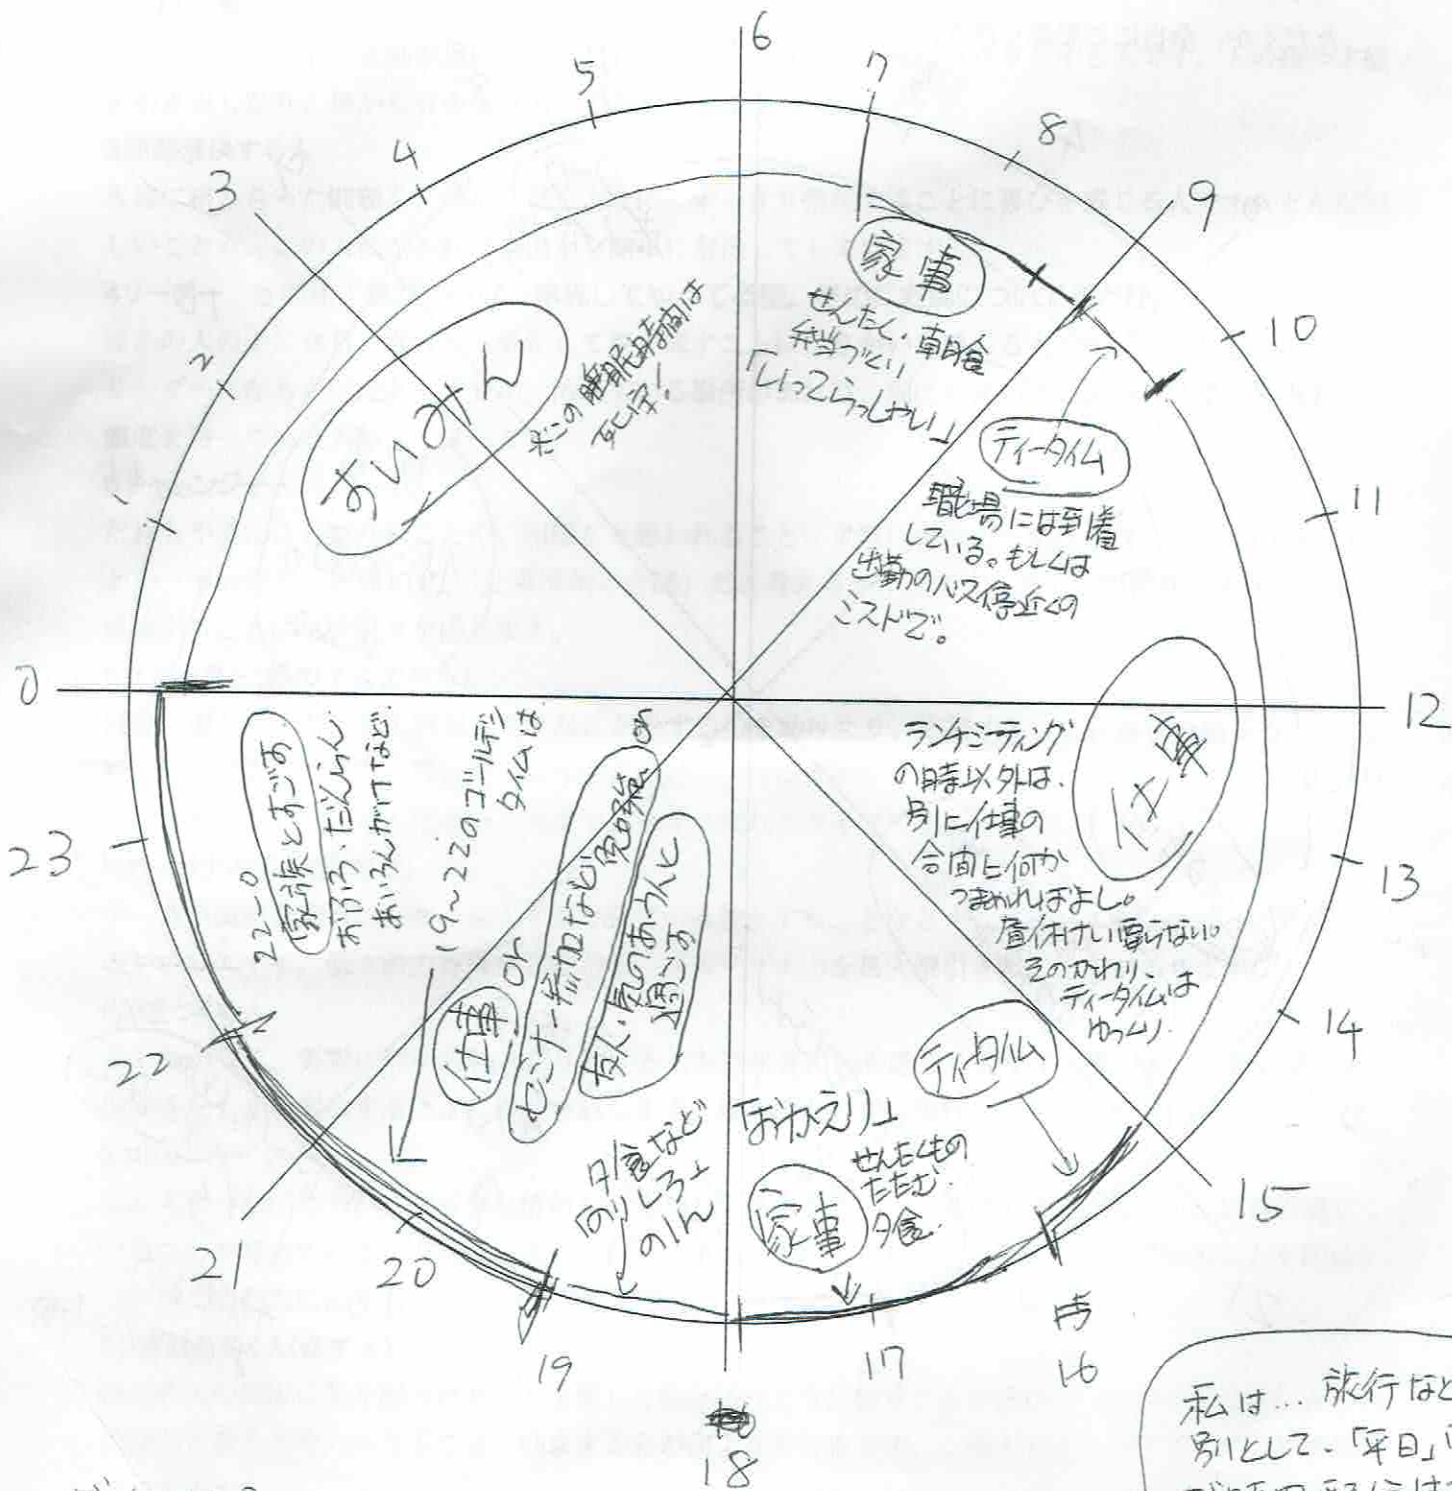 6
7
8
9
10
11
12
13
14
15
16
17
18
19
20
21
22
23
0
1
2
3
4
5
すいみん
この睡眠時間は
死守!
家事
せんたく 朝食
弁当づくり
「いってらっしゃい」
ティータイム
職場には到着
している。もしくは
出勤のバス停近くの
ミスドで。
仕事
ランチミーティング
の時以外は、
別に仕事の
合間に何か
つまめればよし。
昼休けい要らない。
そのかわり、
ティータイムは
ゆっくり
ティータイム
「おかえり」
家事
せんたくもの
たたむ
夕食
夕食など
のりしろ
19〜22のゴールデン
タイムは
仕事 or
セミナー参加など
or
友人・気のあう人と
過ごす
22〜0
家族とすごす
おふろ・だんらん
あいろんがけなど
私は… 旅行など
別として、「平日」